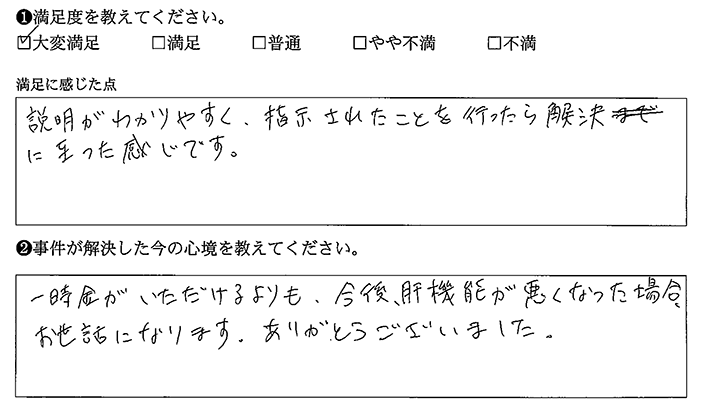 ❶満足度を教えてください。
☑大変満足 □満足 □普通 □やや不満 □不満
満足に感じた点
説明がわかりやすく、指示されたことを行ったら解決まで
に至った感じです。
❷事件が解決した今の心境を教えてください。
一時金がいただけるよりも、今後、肝機能が悪くなった場合、
お世話になります。ありがとうございました。